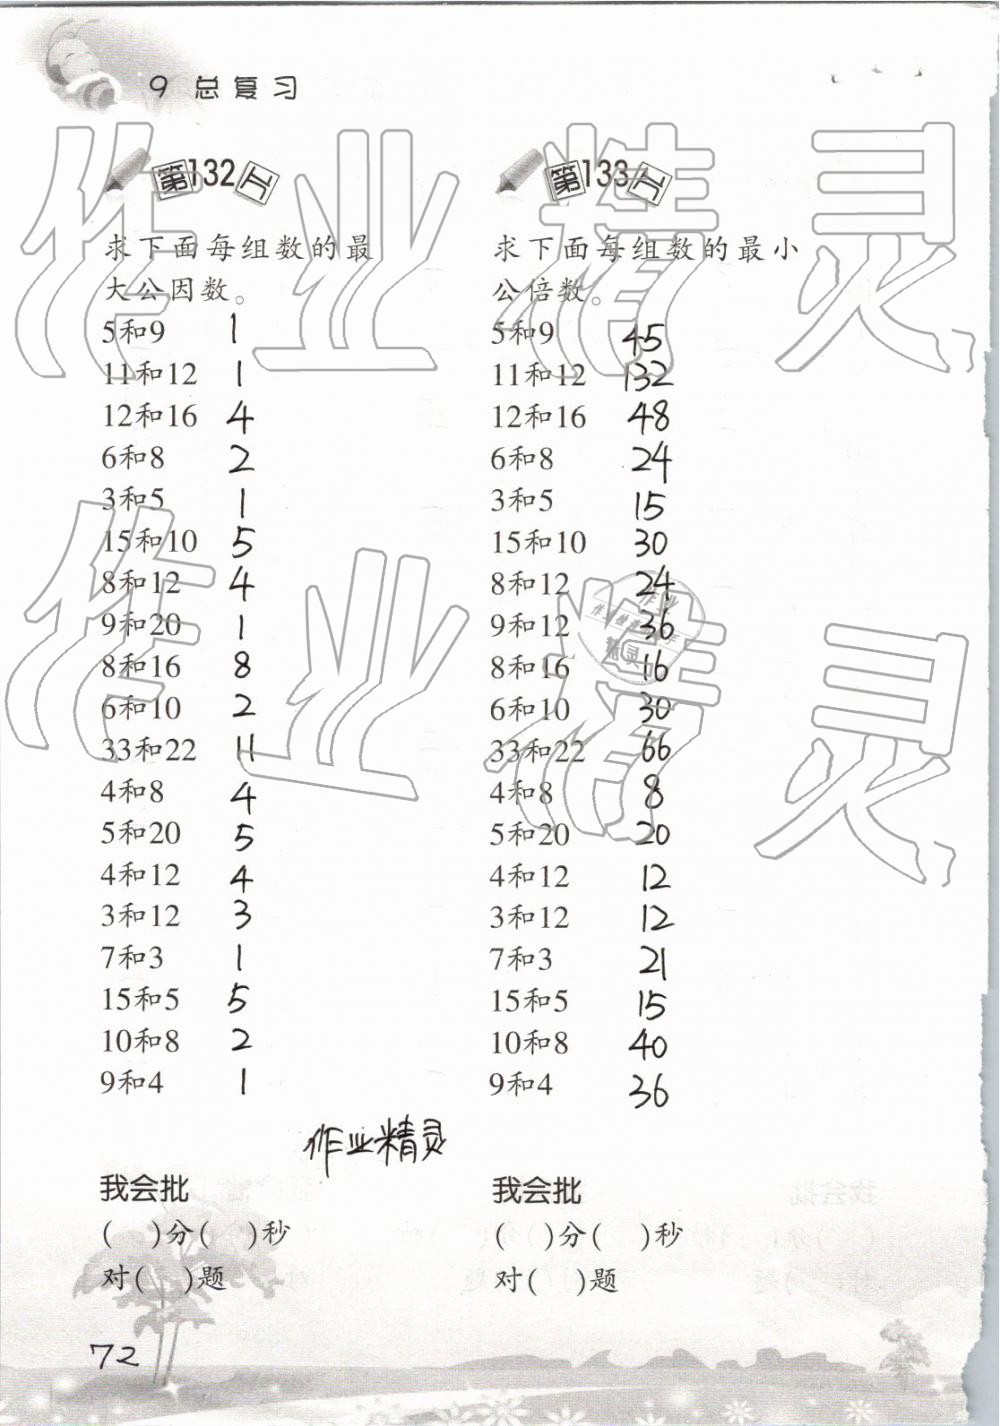 9 总复习
第132页
求下面每组数的最
大公因数。
5和9 1
11和12 1
12和16 4
6和8 2
3和5 1
15和10 5
8和12 4
9和20 1
8和16 8
6和10 2
33和22 11
4和8 4
5和20 5
4和12 4
3和12 3
7和3 1
15和5 5
10和8 2
9和4 1
我会批
( )分( )秒
对( )题
第133页
求下面每组数的最小
公倍数。
5和9 45
11和12 132
12和16 48
6和8 24
3和5 15
15和10 30
8和12 24
9和12 36
8和16 16
6和10 30
33和22 66
4和8 8
5和20 20
4和12 12
3和12 12
7和3 21
15和5 15
10和8 40
9和4 36
我会批
( )分( )秒
对( )题
作业精灵
72
作业精灵
作业精灵